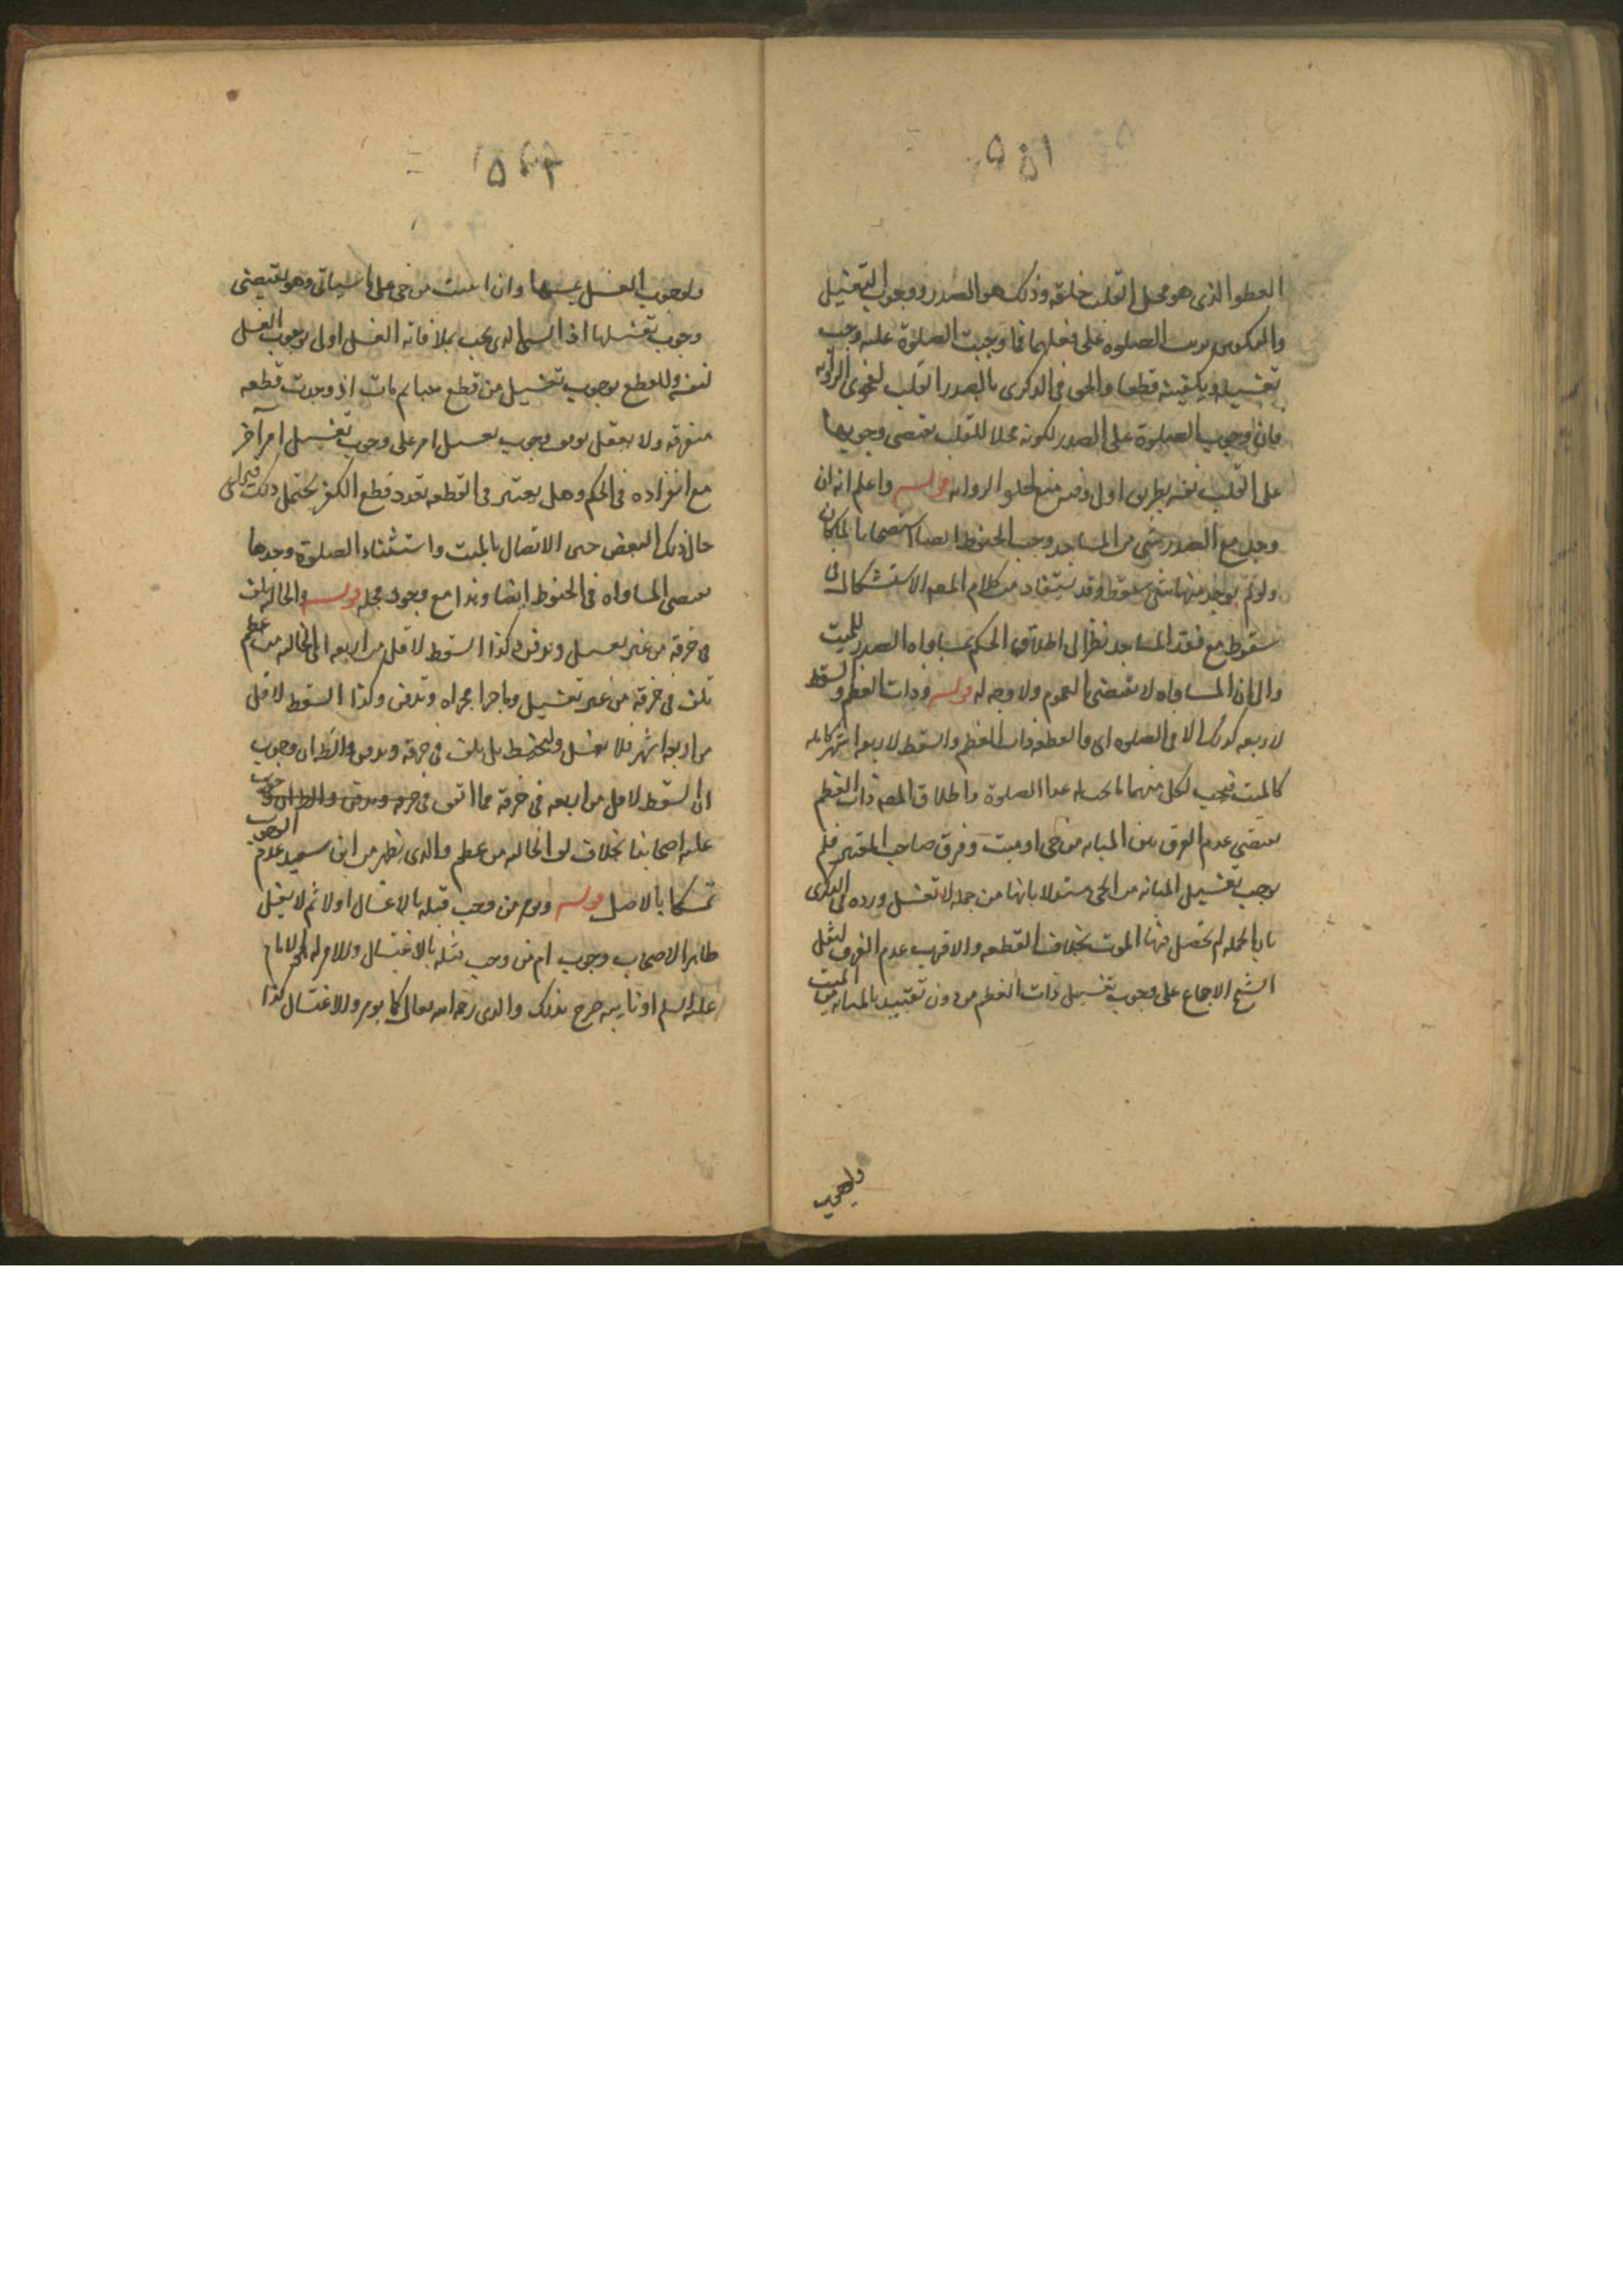 العضو الذى هو محل القلب خلقة وذلك هو الصدر ووجوب التغسيل
والتكفين يوجب الصلوة على فعلهما فما وجبت الصلوة عليه وجب
تغسيله وتكفينه قطعا والحق فى الذكرى بالصدر القلب لفحوى الرواية
فان وجوب الصلوة على الصدر لكونه محلا للقلب يقتضى وجوبها
على القلب نفسه بطريق اولى وفيه منع الرواية قوله واعلم انه ان
وجد مع الصدر شىء من المساجد وجب الحنوط ايضا استصحابا لما كان
ولو لم يوجد منها شىء سقط وقد يستفاد من كلام المصه الاستشكال فى
سقوط مع فقد المساجد نظرا الى اطلاق الحكم بمساواه الصدر للميت
والى ان المساواه لا تقتضى العموم ولا وجه له قوله وذات العظم والسقط
لاربعه كذلك الا فى الصلوه اى والقطعه ذات العظم والسقط لاربعه اشهر كامله
كالميت فيجب لكل منهما ما يجب له عدا الصلوة واطلاق المصه ذات العظم
يقتضى عدم الفرق بين المبانه من حى او ميت وفرق صاحب المعتبر فلم
يوجب تغسيل المبانه من الحى بانها من جمله لا تغسل ورده فى الذكرى
بان الجمله لم يحصل فيها الموت بخلاف القطعه والاقرب عدم الفرق لنقل
الشيخ الاجماع على وجوب تغسيل ذات العظم من دون تقييد بالمبانه من الميت
ولوجوب
ولوجوب الغسل بمسها وان ابينت من حى على ما سياتى وهو يقتضى
وجوب تغسيلها اذ المس الذى يجب بملاقاته الغسل اولى بوجوب الغسل
لنفسه وللقطع بوجوب تغسيل من قطع ثم مات اذ وجدت قطعه
متفرقه ولا يعقل توقف وجوب تغسيل امر على وجوب تغسيل امر آخر
مع انفراده فى الحكم وهل يعتبر فى القطعه تعدد قطع الكفن يحتمل ذلك
حال ذلك البعض حين الاتصال بالميت واستثناء الصلوة وحدها
يقتضى المساواه فى الحنوط ايضا وهذا مع وجود محله قوله والخاليه تلف
فى خرقه من غير تغسيل وتدفن وكذا السقط لاقل من الاربعه اى الخاليه من عظم
تلف فى خرقة من غير تغسيل وما جرا مجراه وتدفن وكذا السقط لاقل
من اربعه اشهر فلا يغسل ولا يحنط بل يلف فى خرقه ويدفن والظ ان وجوب
لف السقط لاقل من اربعه فى خرقة مما اتفق
عليه اصحابنا بخلاف لف الخاليه من عظم والذى يظهر من ابن سعيد عدم الوجوب
تمسكا بالاصل قوله ويومر من وجب قتله بالاغتسال اولا ثم لا يغسل
ظاهر الاصحاب وجوب امر من وجب قتله بالاغتسال والامر له هو الامام
عليه السلم او نايبه صرح بذلك والدى رحمه الله تعالى كما يومر والاغتسال كذا